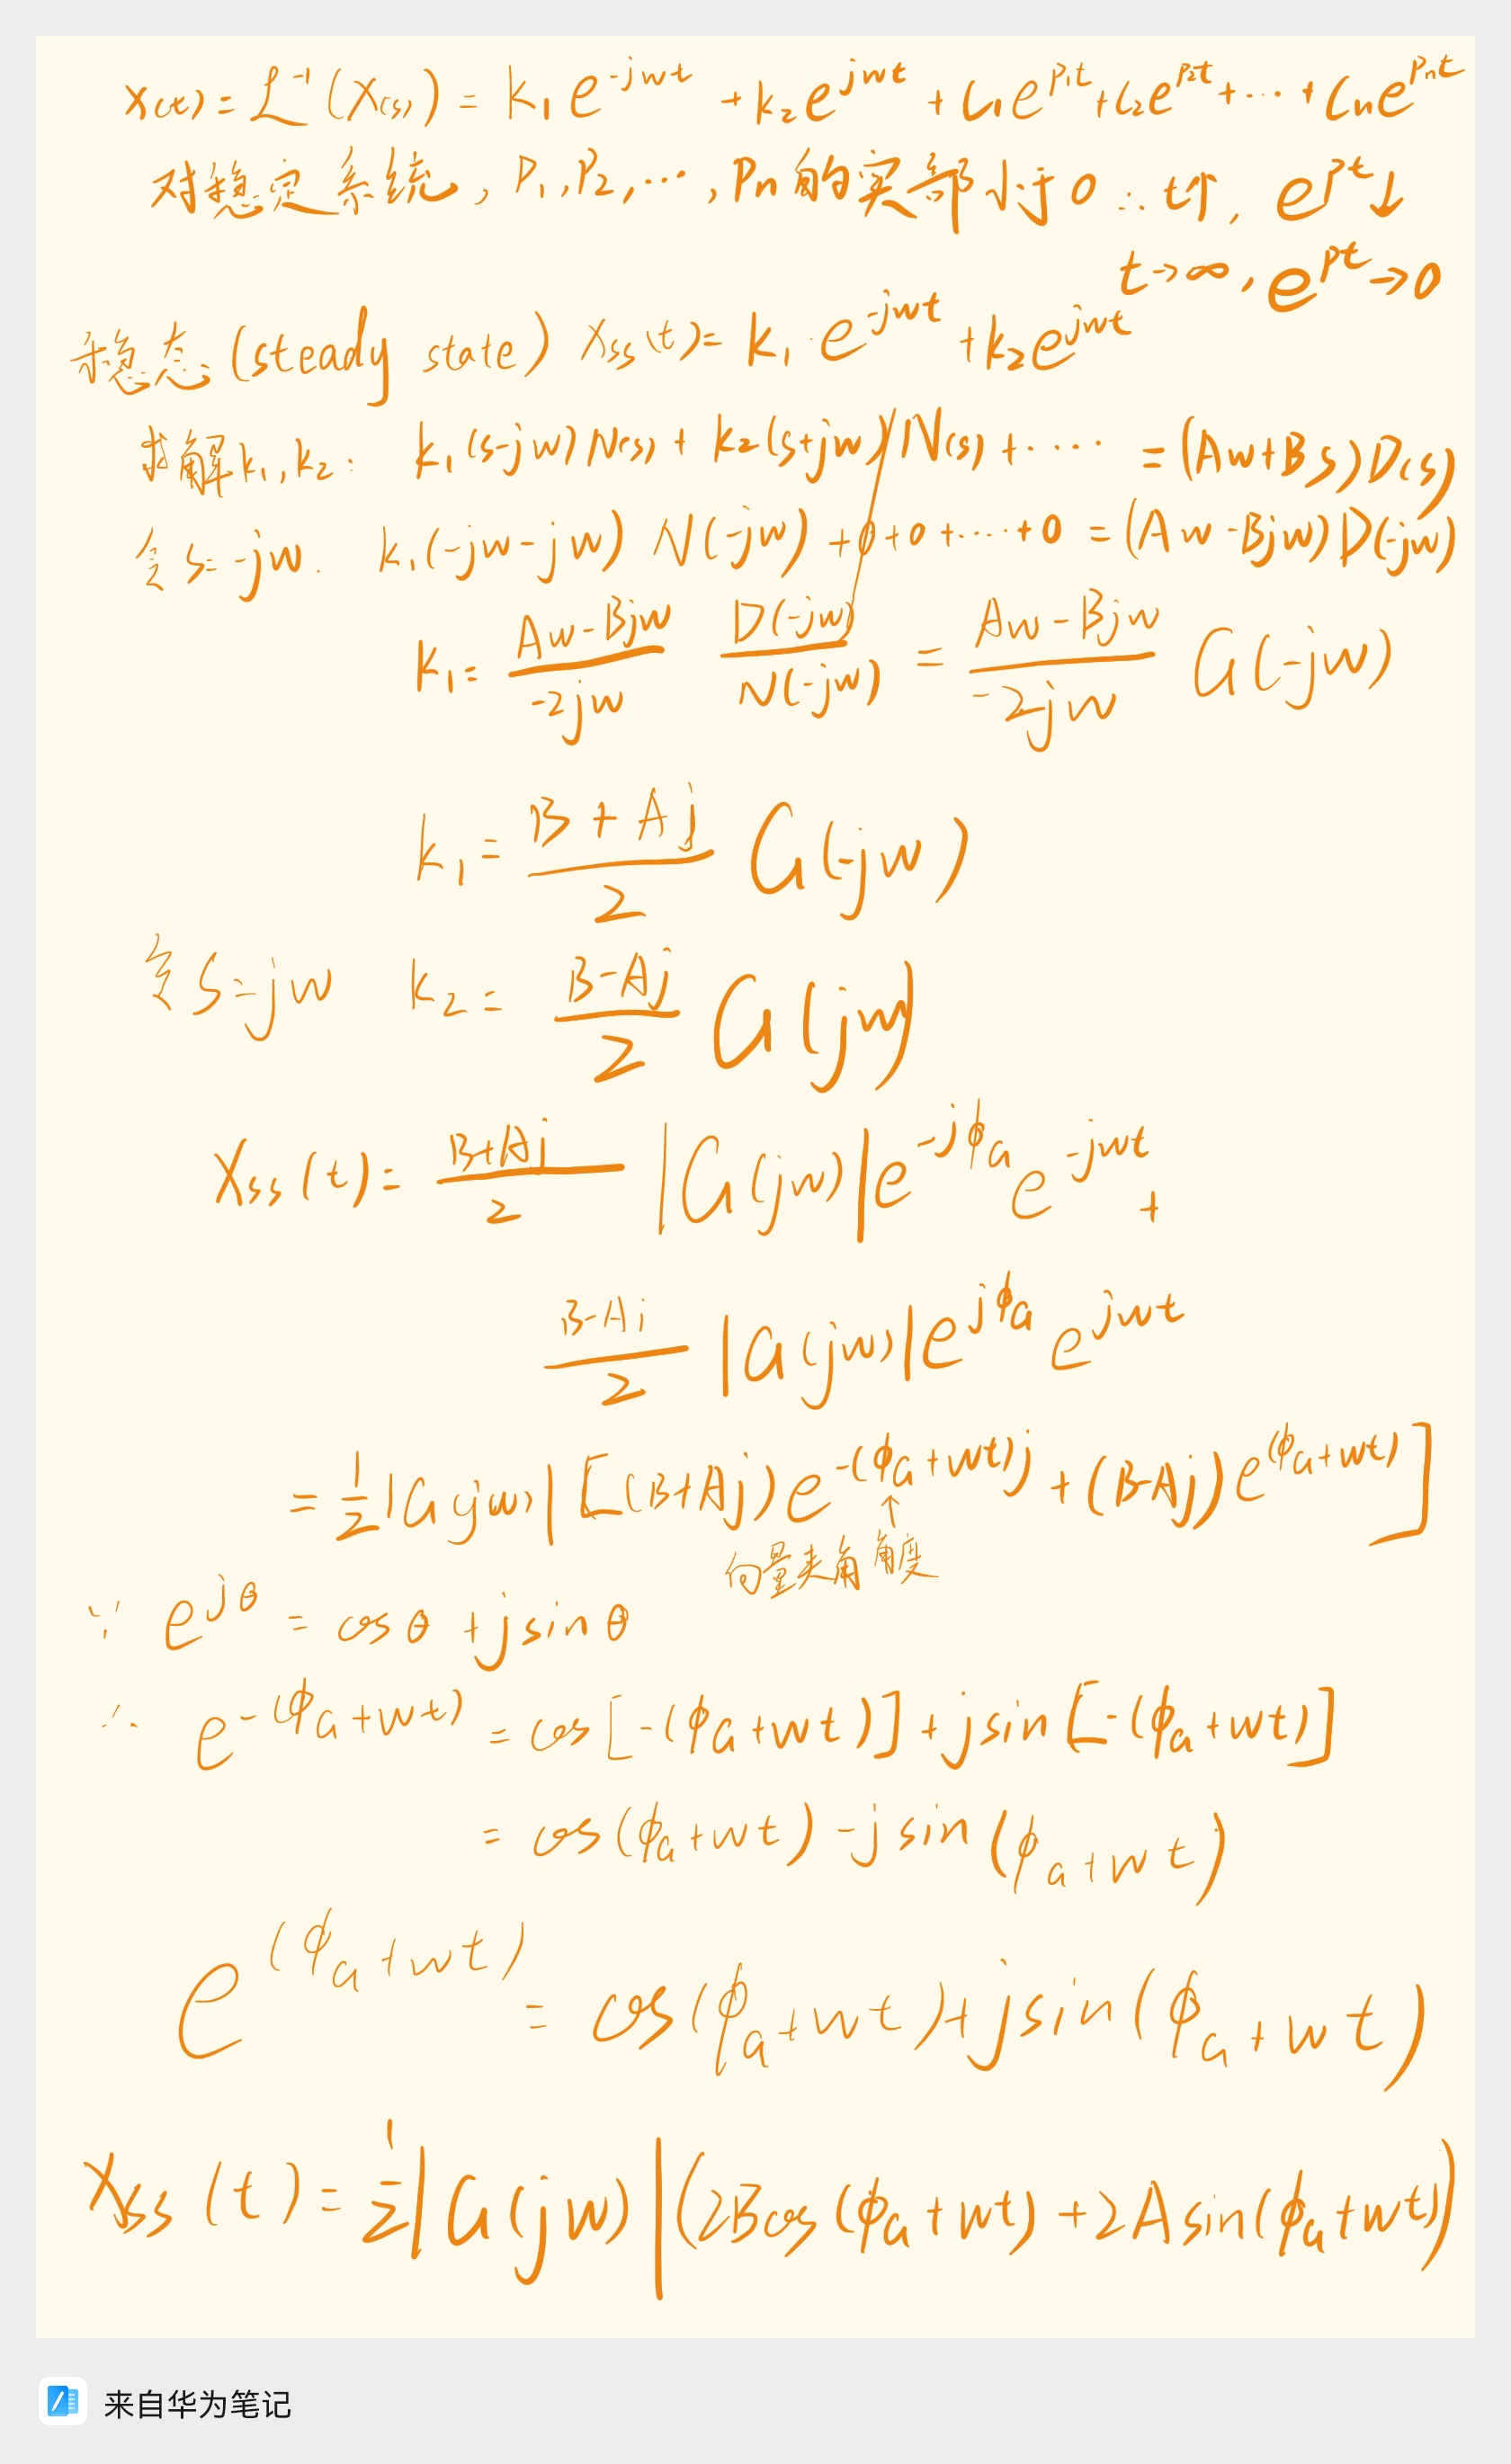 x(t) = L⁻¹(X(s)) = k₁e^(-jwt) + k₂e^(jwt) + C₁e^(P₁t) + C₂e^(P₂t) + ··· + Cₙe^(Pₙt)
对稳定系统, P₁, P₂, ···, Pₙ的实部小于0 ∴ t↑, e^(Pt)↓
t→∞, e^(Pt)→0
稳态: (steady state) Xss(t) = k₁·e^(-jwt) + k₂e^(jwt)
求解k₁, k₂: k₁(s-jw)N(s) + k₂(s+jw)N(s) + ···· = (Aw+Bs)D(s)
令s=-jw. k₁(-jw-jw)N(-jw) + 0 + 0 + ··· + 0 = (Aw-Bjw)D(-jw)
k₁ = (Aw-Bjw)/(-2jw) D(-jw)/N(-jw) = (Aw-Bjw)/(-2jw) G(-jw)
k₁ = (B+Aj)/2 G(-jw)
令s=jw k₂ = (B-Aj)/2 G(jw)
Xss(t) = (B+Aj)/2 |G(jw)|e^(-jϕ_G) e^(-jwt) +
(B-Aj)/2 |G(jw)|e^(jϕ_G) e^(jwt)
= 1/2 |G(jw)| [(B+Aj)e^(-(ϕ_G+wt)j) + (B-Aj)e^(ϕ_G+wt)]
↑
向量夹角 角度
∵ e^(jθ) = cosθ + jsinθ
∴ e^(-(ϕ_G+wt)) = cos[-(ϕ_G+wt)] + jsin[-(ϕ_G+wt)]
= cos(ϕ_G+wt) - jsin(ϕ_G+wt)
e^(ϕ_G+wt) = cos(ϕ_G+wt) + jsin(ϕ_G+wt)
Xss(t) = 1/2 |G(jw)| (2Bcos(ϕ_G+wt) + 2Asin(ϕ_G+wt))
来自华为笔记